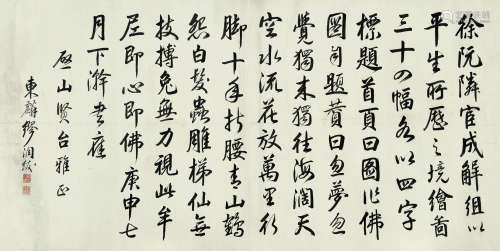 徐阮隣官成解組以
平生所歷之境繪啚
三十四幅各以四字
標題首頁曰圖作佛
圖自題贊曰忽夢忽
覺獨來獨往海闊天
空水流花放萬里行
脚十年折腰青山鶴
怨白髮蟲雕梯仙無
技搏兔無力視此牟
尼即心即佛庚申七
月下澣書應
啟山賢台雅正
東麟繆潤紱